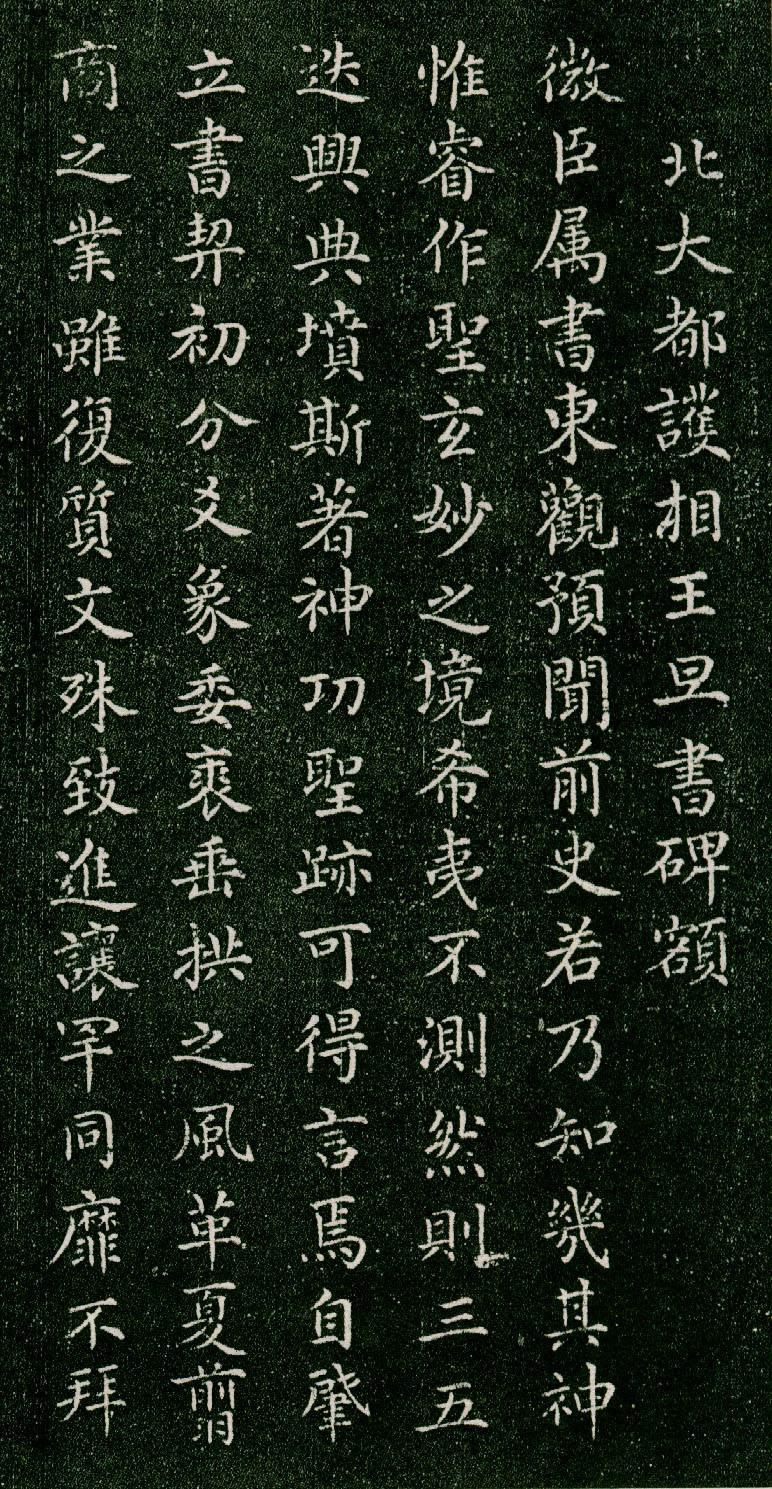 北大都護相王旦書碑額
微臣属書東觀預聞前史若乃知幾其神
惟睿作聖玄妙之境希夷不測然則三五
迭興典墳斯著神功聖跡可得言焉自肇
立書契初分爻象委裘垂拱之風革夏翦
商之業雖復質文殊致進讓罕同靡不拜